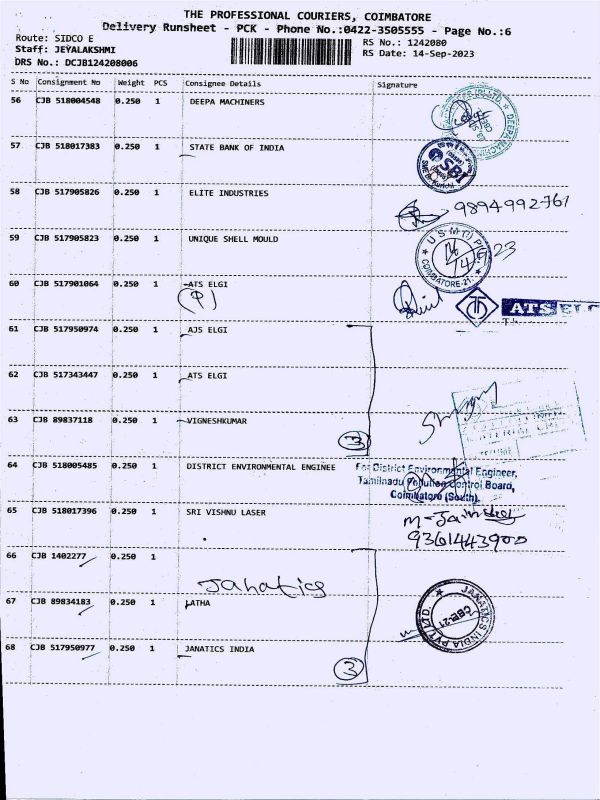 THE PROFESSIONAL COURIERS, COIMBATORE
Delivery Runsheet - PCK - Phone No.:0422-3505555 - Page No.:6
Route: SIDCO E
RS No.: 1242080
Staff: JEYALAKSHMI
RS Date: 14-Sep-2023
DRS No.: DCJB124208006
S No Consignment No Weight PCS Consignee Details Signature
56 CJB 518004548 0.250 1 DEEPA MACHINERS
57 CJB 518017383 0.250 1 STATE BANK OF INDIA SBI
58 CJB 517905826 0.250 1 ELITE INDUSTRIES 9894992761
59 CJB 517905823 0.250 1 UNIQUE SHELL MOULD COIMBATORE-21
60 CJB 517901064 0.250 1 ATS ELGI ATS ELG
(P)
61 CJB 517950974 0.250 1 AJS ELGI
62 CJB 517343447 0.250 1 ATS ELGI
63 CJB 89837118 0.250 1 VIGNESHKUMAR
3
64 CJB 518005485 0.250 1 DISTRICT ENVIRONMENTAL ENGINEE For District Environmental Engineer,
Tamilnadu Pollution Control Board,
Coimbatore (South).
65 CJB 518017396 0.250 1 SRI VISHNU LASER
9361443900
66 CJB 1402277 0.250 1
Janatics
67 CJB 89834183 0.250 1 LATHA JANATICS INDIA PVT. LTD. CBE-21
68 CJB 517950977 0.250 1 JANATICS INDIA
3